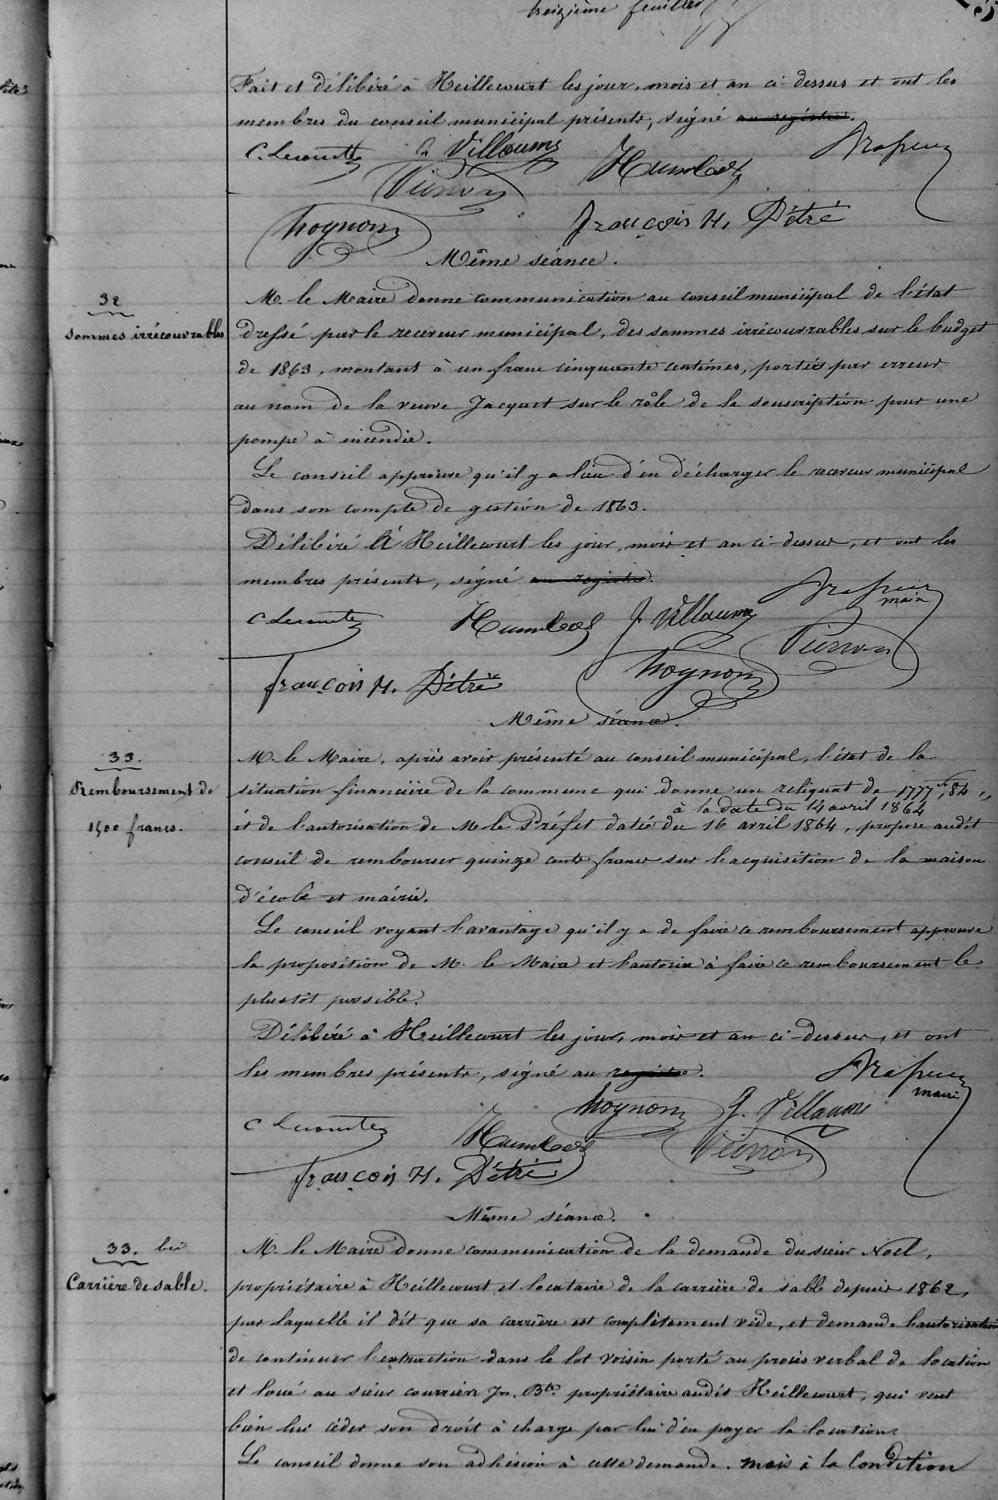 treizième feuillet
Fait et délibéré à Heillecourt les jour, mois et an ci-dessus et ont les
membres du conseil municipal présents, signé au registre.
C. Lecomte G Villaume Humbert
Pierron
Thognon François H. Pétré
Même séance.
32
Sommes irrécouvrables
M. le Maire donne communication au conseil municipal de l'état
dressé par le receveur municipal, des sommes irrécouvrables sur le budget
de 1863, montant à un franc cinquante centimes, portées par erreur
au nom de la veuve Jacquet sur le rôle de la souscription pour une
pompe à incendie.
Le conseil approuve qu'il y a lieu d'en décharger le receveur municipal
dans son compte de gestion de 1863.
Délibéré à Heillecourt les jour, mois et an ci-dessus, et ont les
membres présents, signé au registre.
maire
C Lecomte Humbert J. Villaume Pierron
François H. Pétré Thognon
Même séance.
33.
Remboursement de
1500 francs.
M. le Maire, après avoir présenté au conseil municipal, l'état de la
situation financière de la commune qui donne un reliquat de 1777f,84 c,
à la date du 14 avril 1864
et de l'autorisation de M. le Préfet datée du 16 avril 1864, propose audit
conseil de rembourser quinze cents francs sur l'acquisition de la maison
d'école et mairie.
Le conseil voyant l'avantage qu'il y a de faire ce remboursement approuve
la proposition de M. le Maire et l'autorise à faire ce remboursement le
plustôt possible.
Délibéré à Heillecourt les jour, mois et an ci-dessus, et ont
les membres présents, signé au registre.
maire
Thognon G. Villaume
C Lecomte Humbert Pierron
François H. Pétré
Même séance.
33. bis
Carrière de sable.
M. le Maire donne communication de la demande du sieur Noel,
propriétaire à Heillecourt et locataire de la carrière de sable depuis 1862,
par laquelle il dit que sa carrière est complètement vide, et demande l'autorisation
de continuer l'extraction dans le lot voisin porté au procès verbal de location
et loué au sieur courrier Jn. Bte propriétaire audit Heillecourt, qui veut
bien lui céder son droit à charge par lui d'en payer la location.
Le conseil donne son adhésion à cette demande. mais à la Condition